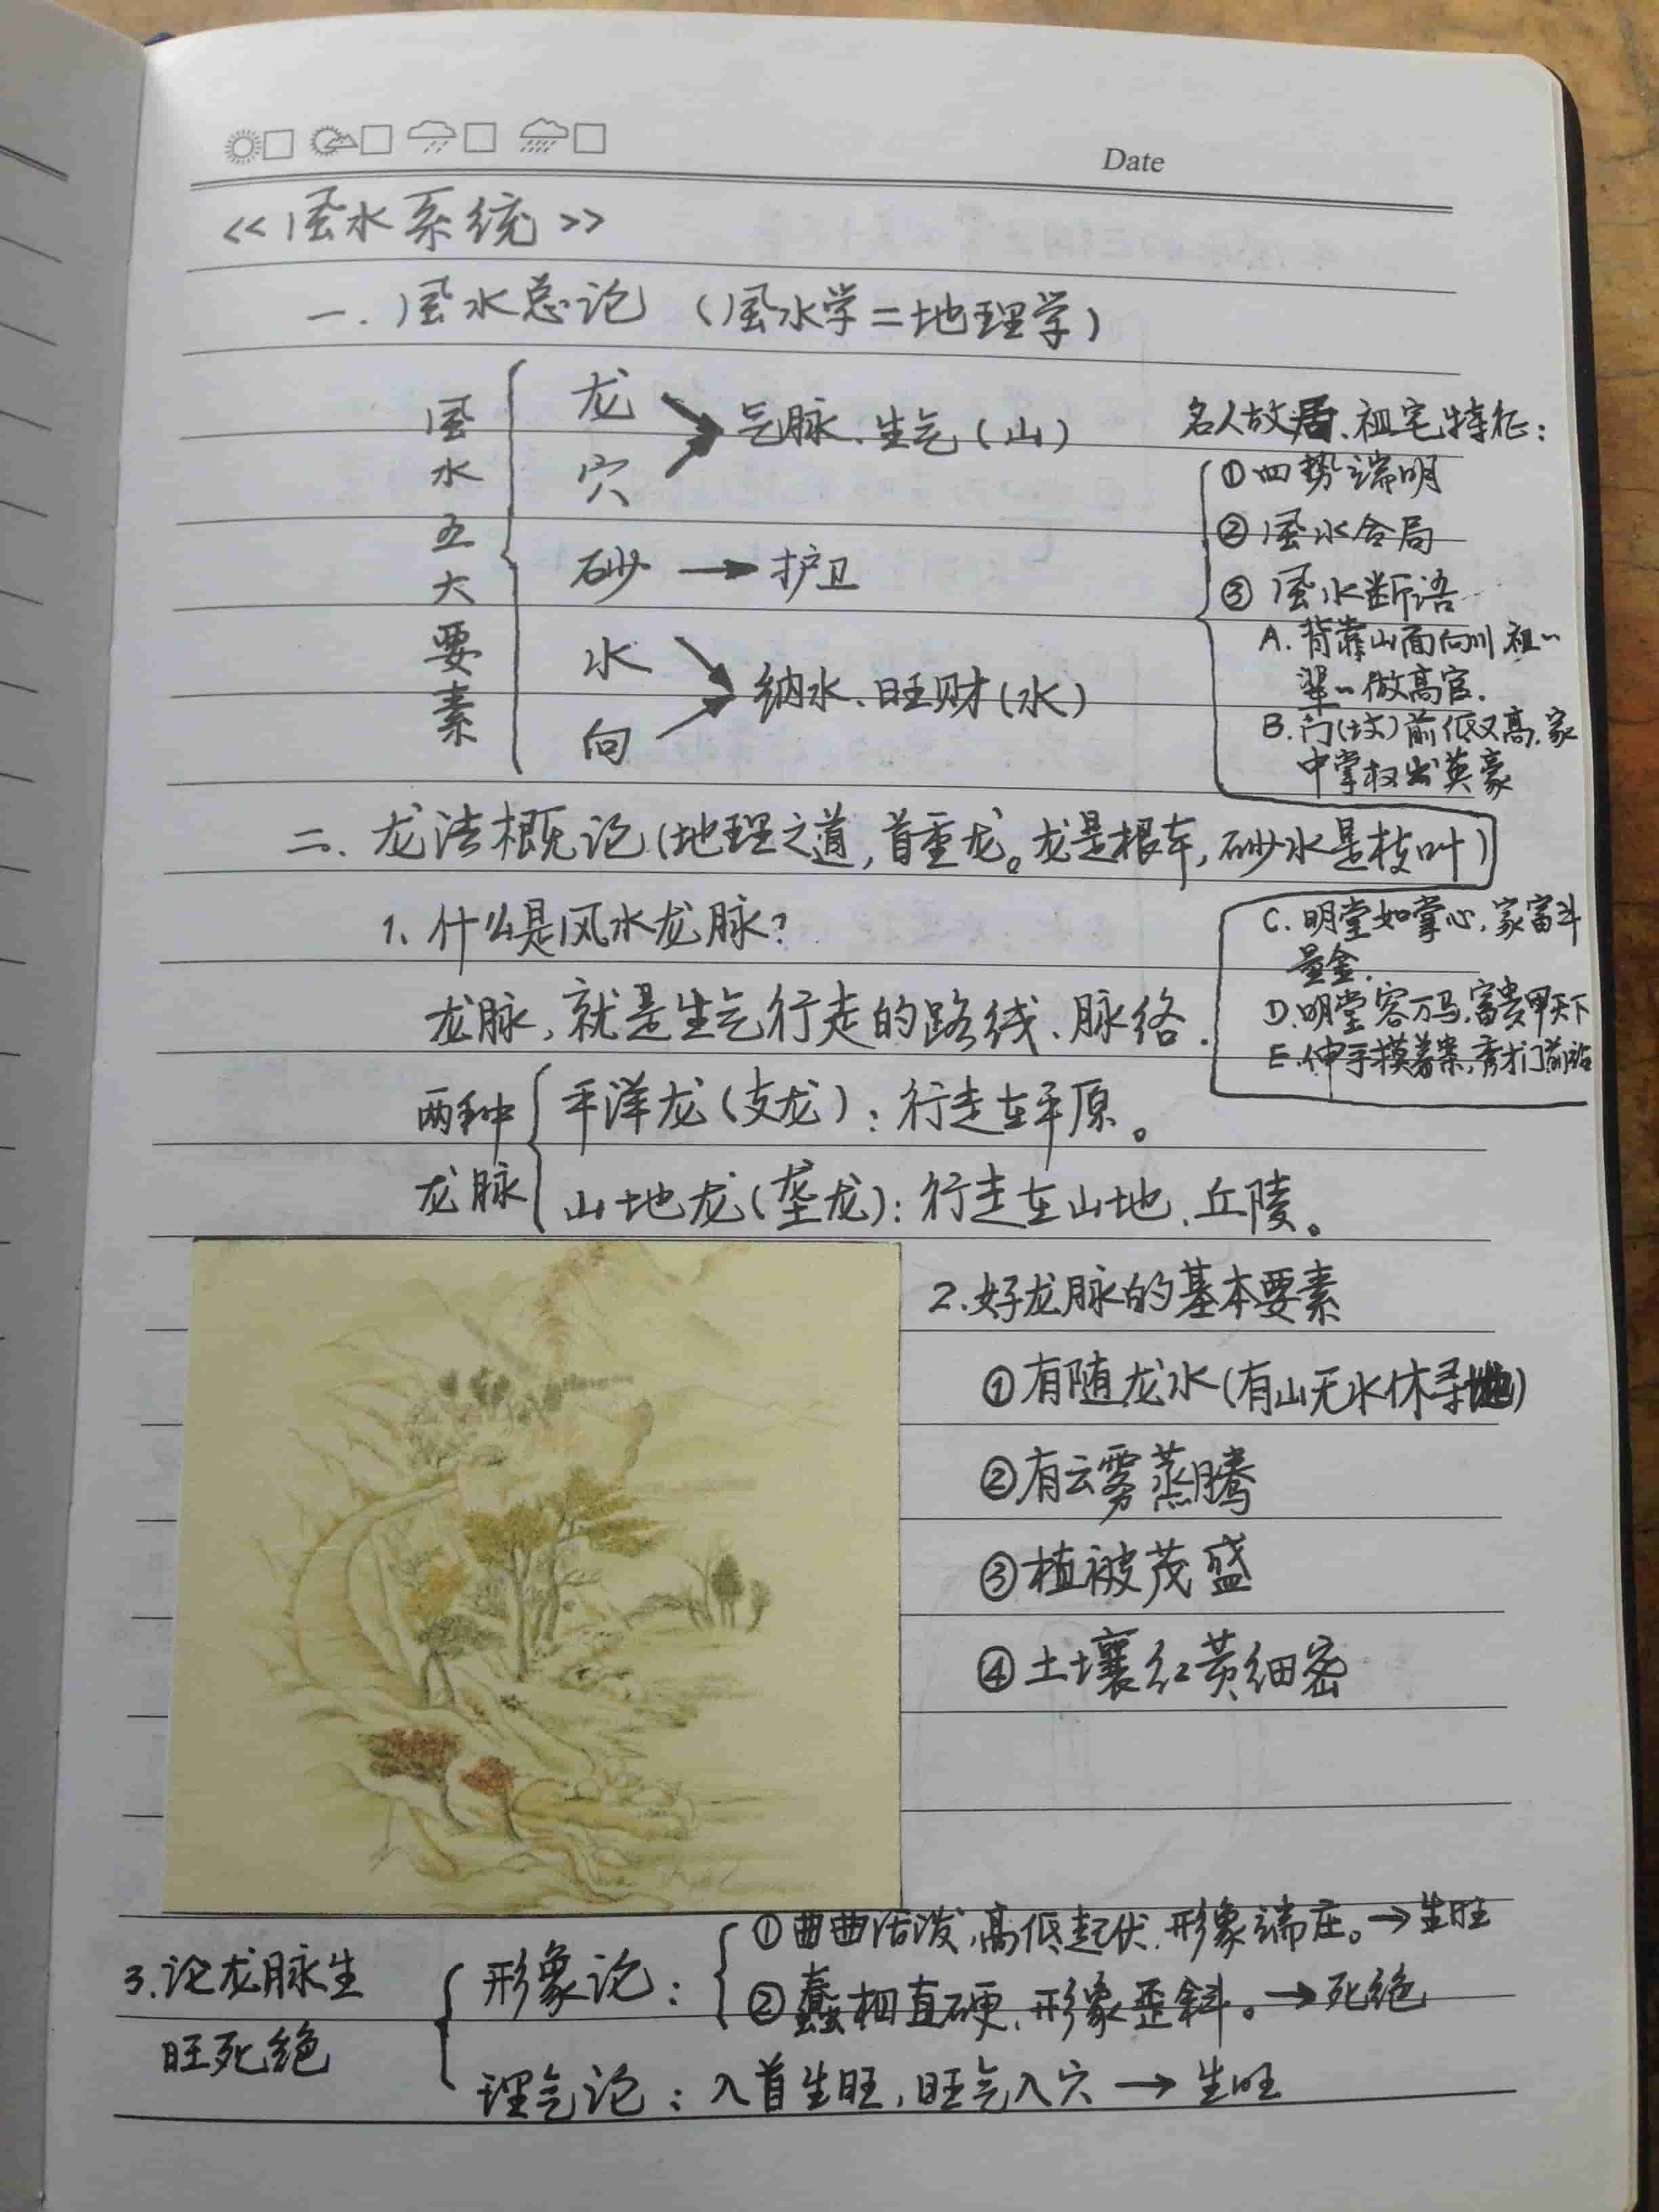 Date
《风水系统》
一.风水总论（风水学=地理学）
风水五大要素
龙
穴
气脉、生气（山）
砂 → 护卫
水
向
纳水、旺财（水）
名人故居、祖宅特征：
①四势端明
②风水合局
③风水断语
A.背靠山面向川祖..
辈..做高官.
B.门(坟)前低又高,家
中掌权出英豪
二、龙法概论(地理之道,首重龙。龙是根本,砂水是枝叶)
C.明堂如掌心,家富斗
量金.
D.明堂容万马,富贵甲天下
E.伸手摸着案,秀才门前站
1、什么是风水龙脉?
龙脉,就是生气行走的路线、脉络.
两种
龙脉
平洋龙(支龙):行走在平原。
山地龙(垄龙):行走在山地、丘陵。
2.好龙脉的基本要素
①有随龙水(有山无水休寻地)
②有云雾蒸腾
③植被茂盛
④土壤红黄细密
3.论龙脉生
旺死绝
形象论:
①曲曲活泼,高低起伏,形象端庄。→生旺
②蠢粗直硬,形象歪斜。→死绝
理气论:入首生旺,旺气入穴→生旺